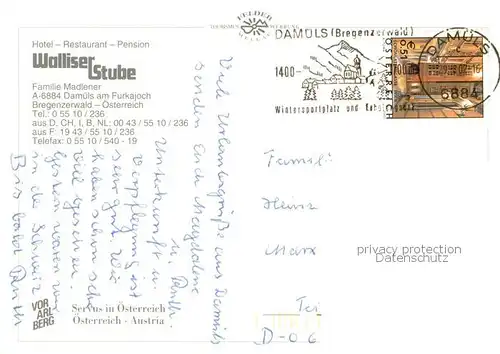 FELDER
TOURISMUS WERBUNG
Hotel – Restaurant – Pension
Walliser
Stube
Familie Madlener
A-6884 Damüls am Furkajoch
Bregenzerwald – Österreich
Tel.: 0 55 10 / 236
aus D, CH, I, B, NL: 00 43 / 55 10 / 236
aus F: 19 43 / 55 10 / 236
Telefax: 0 55 10 / 540 - 19
DAMÜLS (Bregenzerwald)
1400-
Wintersportplatz und
DAMÜLS
6884
ÖSTERREICH
Viele Urlaubsgrüße aus Damüls
senden Euch Magdalena
u. Ruth
Unterkunft u.
Verpflegung ist
sehr gut. Wir
haben schon sehr
viel gesehen.
Gestern waren wir
in der Schweiz
Bis bald Ruth
Familie
Heinz
Marx
D-06
privacy protection
Datenschutz
VOR
ARL
BERG
Servus in Österreich
Österreich - Austria